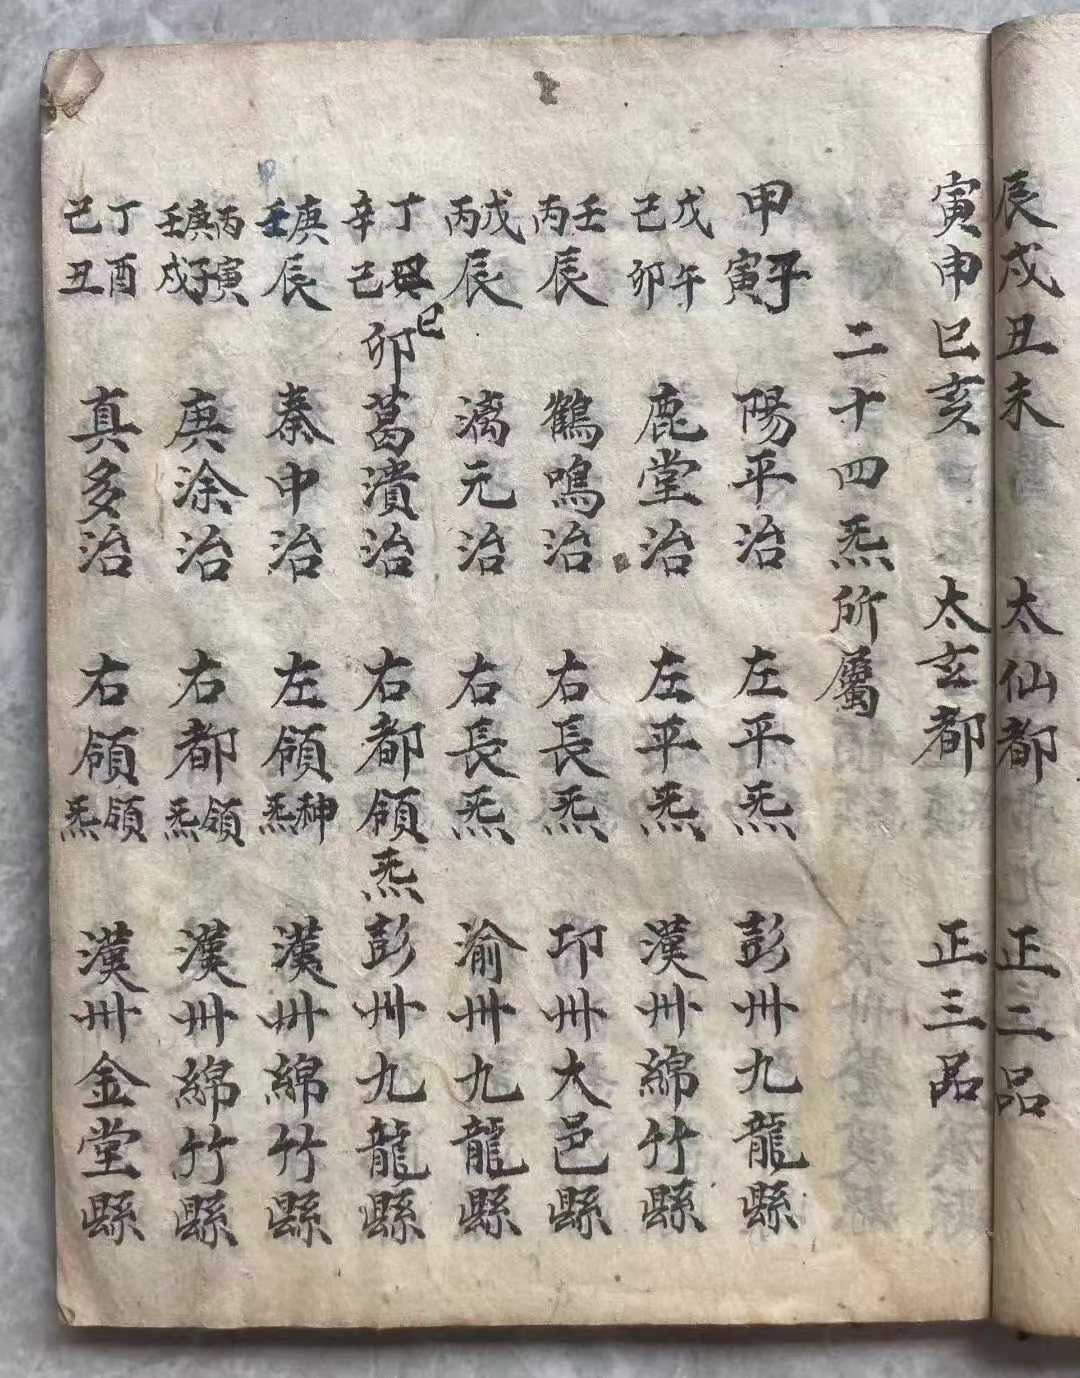 辰戌丑未 太仙都 正二品
寅申巳亥 太玄都 正三品
二十四炁所屬
甲子寅 陽平治 左平炁 彭州九龍縣
戊午己卯 鹿堂治 左平炁 漢州綿竹縣
壬丙辰 鶴鳴治 右長炁 邛州大邑縣
戊丙辰 漓元治 右長炁 渝州九龍縣
丁丑巳辛己卯 葛潰治 右都領炁 彭州九龍縣
庚壬辰 秦中治 左領神炁 漢州綿竹縣
丙寅庚子壬戌 庚涂治 右都領炁 漢州綿竹縣
丁酉己丑 真多治 右領領炁 漢州金堂縣